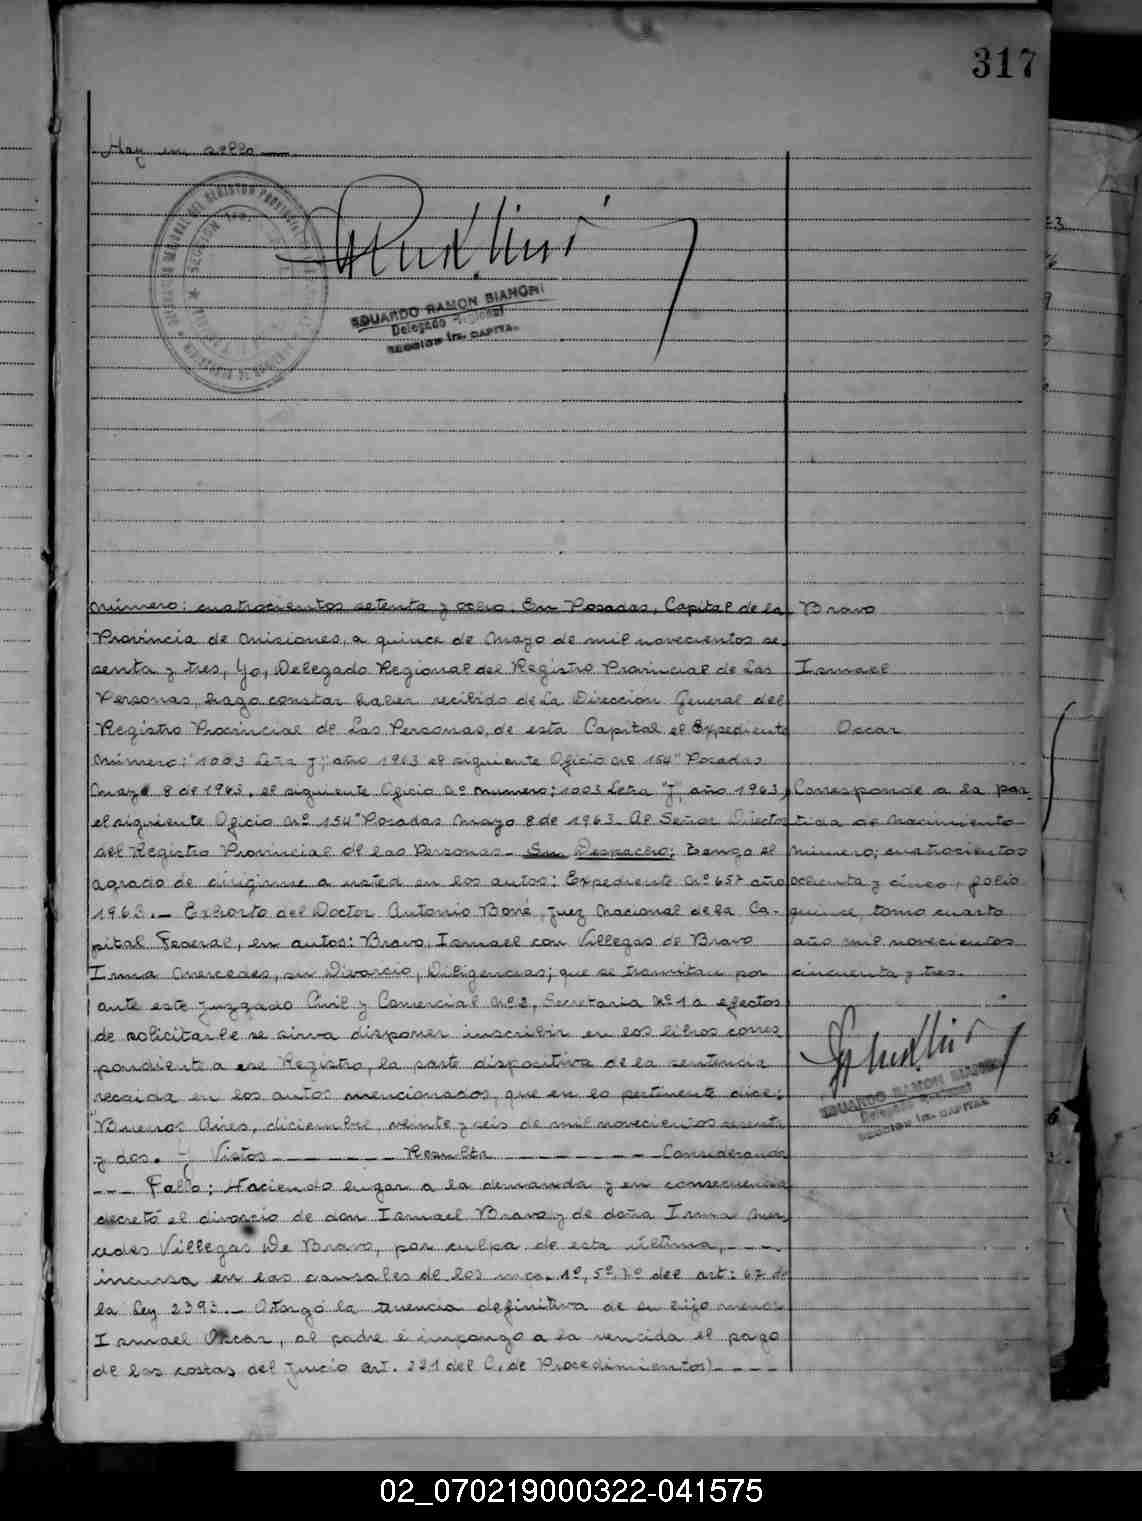 317
Hay un sello
EDUARDO RAMON BIANCHI
Delegado Regional
SECCION 1ra. CAPITAL
Número: cuatrocientos setenta y ocho. En Posadas, Capital de la
Provincia de Misiones, a quince de Mayo de mil novecientos se-
senta y tres, Yo, Delegado Regional del Registro Provincial de Las
Personas, hago constar haber recibido de La Dirección General del
Registro Provincial de Las Personas, de esta Capital el Expediente
Número: "1003 Letra J", año 1963 el siguiente Oficio Nº 154" Posadas
Mayo 8 de 1963, el siguiente Oficio Nº numero; 1003 Letra "J", año 1963,
el siguiente Oficio Nº 154" Posadas Mayo 8 de 1963. Al Señor Director
del Registro Provincial de las Personas- Su Despacho: Tengo el
agrado de dirigirme a usted en los autos: Expediente Nº 657 año
1963.- Exhorto del Doctor Antonio Boné, Juez Nacional de la Ca-
pital Federal, en autos: Bravo, Ismael con Villegas de Bravo
Irma Mercedes, su Divorcio, Diligencias; que se tramitan por
ante este juzgado Civil y Comercial Nº 2, Secretaria Nº 1 a efectos
de solicitarle se sirva disponer inscribir en los libros corres
pondiente a ese Registro, la parte dispositiva de la sentencia
recaida en los autos mencionados, que en lo pertinente dice:
"Buenos Aires, diciembre, veinte y seis de mil novecientos sesenta
y dos. y Vistos ------- Resulta ------- Considerando
--- Fallo: Haciendo lugar a la demanda y en consecuencia
decretó el divorcio de don Ismael Bravo y de doña Irma Mer-
cedes Villegas De Bravo, por culpa de esta última, ----
incursa en las causales de los incs. 1º, 5º, 7º del art: 67 de
la Ley 2393.- Otorgó la tenencia definitiva de su hijo menor
Ismael Oscar, al padre é impongo a la vencida el pago
de las costas del juicio art. 221 del C. de Procedimientos) ----
Bravo
Ismael
Oscar
Corresponde a la par-
tida de Nacimiento
Número; cuatrocientos
ochenta y cinco, folio
quince, tomo cuarto
año mil novecientos
cincuenta y tres.
EDUARDO RAMON BIANCHI
Delegado Regional
SECCION 1ra. CAPITAL
02_070219000322-041575